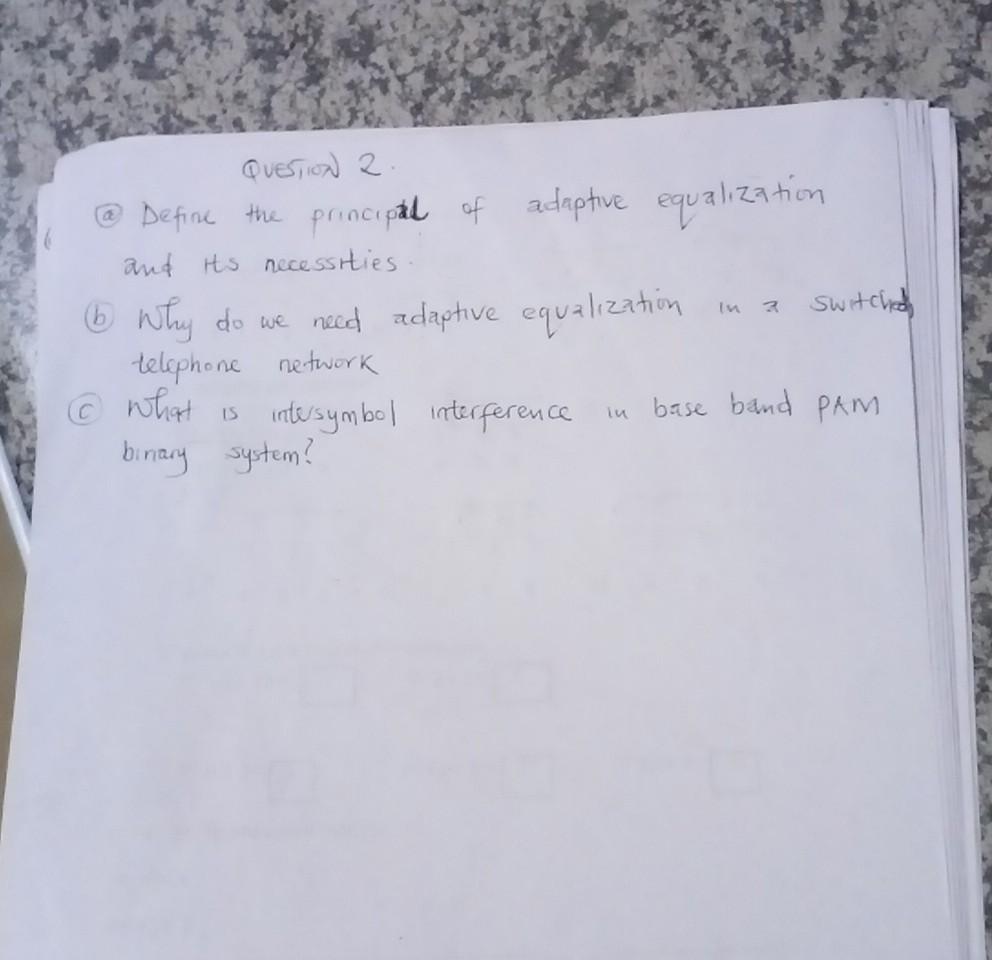 QUESTION 2.
(a) Define the principal of adaptive equalization
and its necessities.
(b) Why do we need adaptive equalization in a switched
telephone network
(c) What is intersymbol interference in base band PAM
binary system?